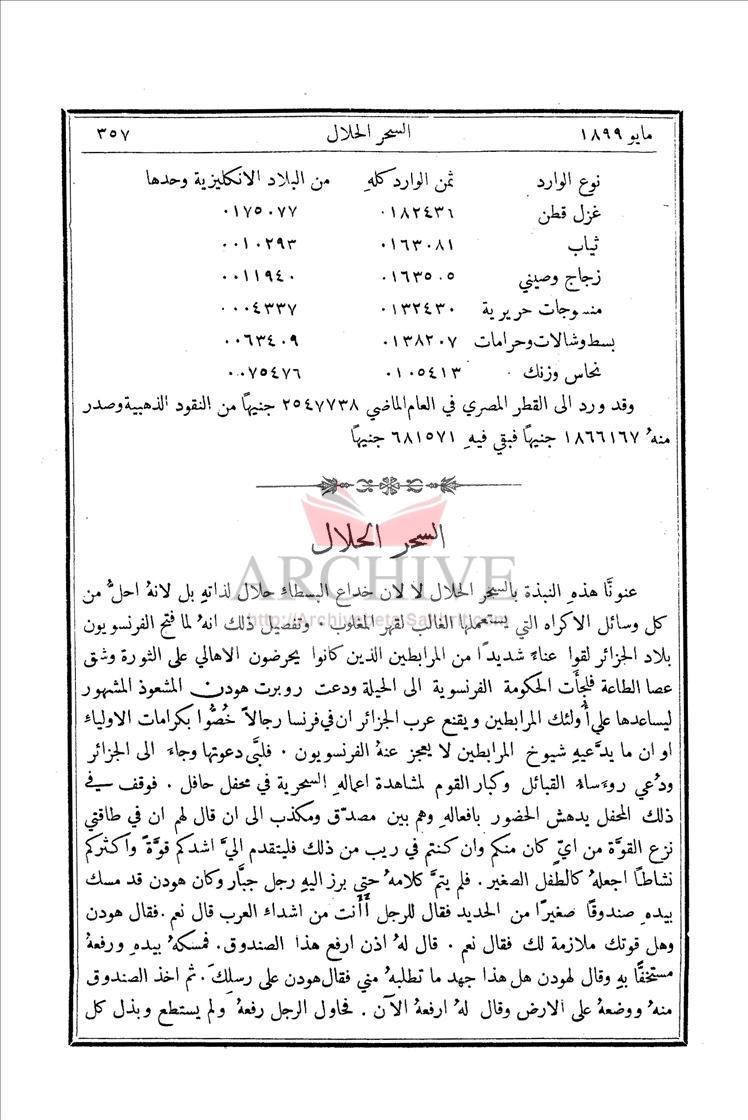 مايو ١٨٩٩ السحر الحلال ٣٥٧
نوع الوارد ثمن الوارد كلهِ من البلاد الانكليزية وحدها
غزل قطن ٠١٨٢٤٣٦ ٠١٧٥٠٧٧
ثياب ٠١٦٣٠٨١ ٠٠١٠٢٩٣
زجاج وصيني ٠١٦٣٥٠٥ ٠٠١١٩٤٠
منسوجات حريرية ٠١٣٢٤٣٠ ٠٠٠٤٣٣٧
بسط وشالات وحرامات ٠١٣٨٢٠٧ ٠٠٦٣٤٠٩
نحاس وزنك ٠١٠٥٤١٣ ٠٠٧٥٤٧٦
وقد ورد الى القطر المصري في العام الماضي ٢٥٤٧٧٣٨ جنيهًا من النقود الذهبية وصدر
منهُ ١٨٦٦١٦٧ جنيهًا فبقي فيهِ ٦٨١٥٧١ جنيهًا
السحر الحلال
ARCHIVE
http://Archivebeta.Sakhrit.com
عنونَّا هذهِ النبذة بالسحر الحلال لا لان خداع البسطاء حلال لذاتهِ بل لانهُ احلُّ من
كل وسائل الاكراه التي يستعملها الغالب لقهر المغلوب . وتفصيل ذلك انهُ لما فتح الفرنسويون
بلاد الجزائر لقوا عناءً شديدًا من المرابطين الذين كانوا يحرضون الاهالي على الثورة وشق
عصا الطاعة فلجأَت الحكومة الفرنسوية الى الحيلة ودعت روبرت هودن المشعوذ المشهور
ليساعدها على أُولئك المرابطين ويقنع عرب الجزائر ان في فرنسا رجالاً خُصُّوا بكرامات الاولياء
او ان ما يدَّعيهِ شيوخ المرابطين لا يعجز عنهُ الفرنسويون . فلبَّى دعوتها وجاءَ الى الجزائر
ودُعي روءَساءُ القبائل وكبار القوم لمشاهدة اعمالهِ السحرية في محفل حافل . فوقف في
ذلك المحفل يدهش الحضور بافعالهِ وهم بين مصدّق ومكذب الى ان قال لهم ان في طاقتي
نزع القوَّة من ايّ كان منكم وان كنتم في ريب من ذلك فليتقدم اليَّ اشدكم قوَّةً واكثركم
نشاطًا اجعلهُ كالطفل الصغير . فلم يتمَّ كلامهُ حتى برز اليهِ رجل جبَّار وكان هودن قد مسك
بيدهِ صندوقًا صغيرًا من الحديد فقال للرجل أَأَنت من اشداء العرب قال نعم . فقال هودن
وهل قوتك ملازمة لك فقال نعم . قال لهُ اذن ارفع هذا الصندوق . فمسكهُ بيدهِ ورفعهُ
مستخفًّا بهِ وقال لهودن هل هذا جهد ما تطلبهُ مني فقال هودن على رسلك . ثم اخذ الصندوق
منهُ ووضعهُ على الارض وقال لهُ ارفعهُ الآن . فحاول الرجل رفعهُ ولم يستطع وبذل كل